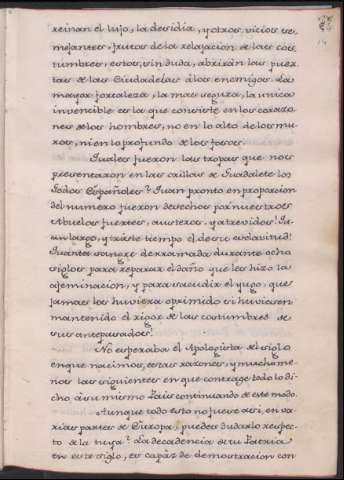 reinan el lujo, la desidia, y otros vicios se-
mejantes, frutos de la relajacion de las cos-
tumbres, estos, sin duda, abrirán las puer-
tas de las Ciudadelas á los enemigos. La
mayor fortaleza, la mas segura, la unica
invencible es la que consiste en los corazo-
nes de los hombres, no en lo alto de los mu-
ros, ni en lo profundo de los fosos.
Quales fueron las tropas que nos
presentaron en las orillas de Guadalete los
Godos Españoles? Quan pronto en proporcion
del numero fueron desechos por nuestros
Abuelos fuertes, austeros, y atrevidos! Qu-
an largo, y triste tiempo el de su esclavitud!
Quanta sangre derramada durante ocho
siglos para reparar el daño que les hizo la
afeminacion, y para sacudir el yugo, que
jamas los huviera oprimido si huviesen
mantenido el rigor de las costumbres de
sus antepasados!
No esperaba el Apologista del siglo
en que nacimos, estas razones, y mucho me-
nos las siguientes en que contrage todo lo di-
cho á su mismo Pais continuando de este modo.
Aunque todo esto no fuese asi, en va-
rias partes de Europa, puedes dudarlo respec-
to de la tuya? La decadencia de tu Patria
en este siglo, es capáz de demostracion con